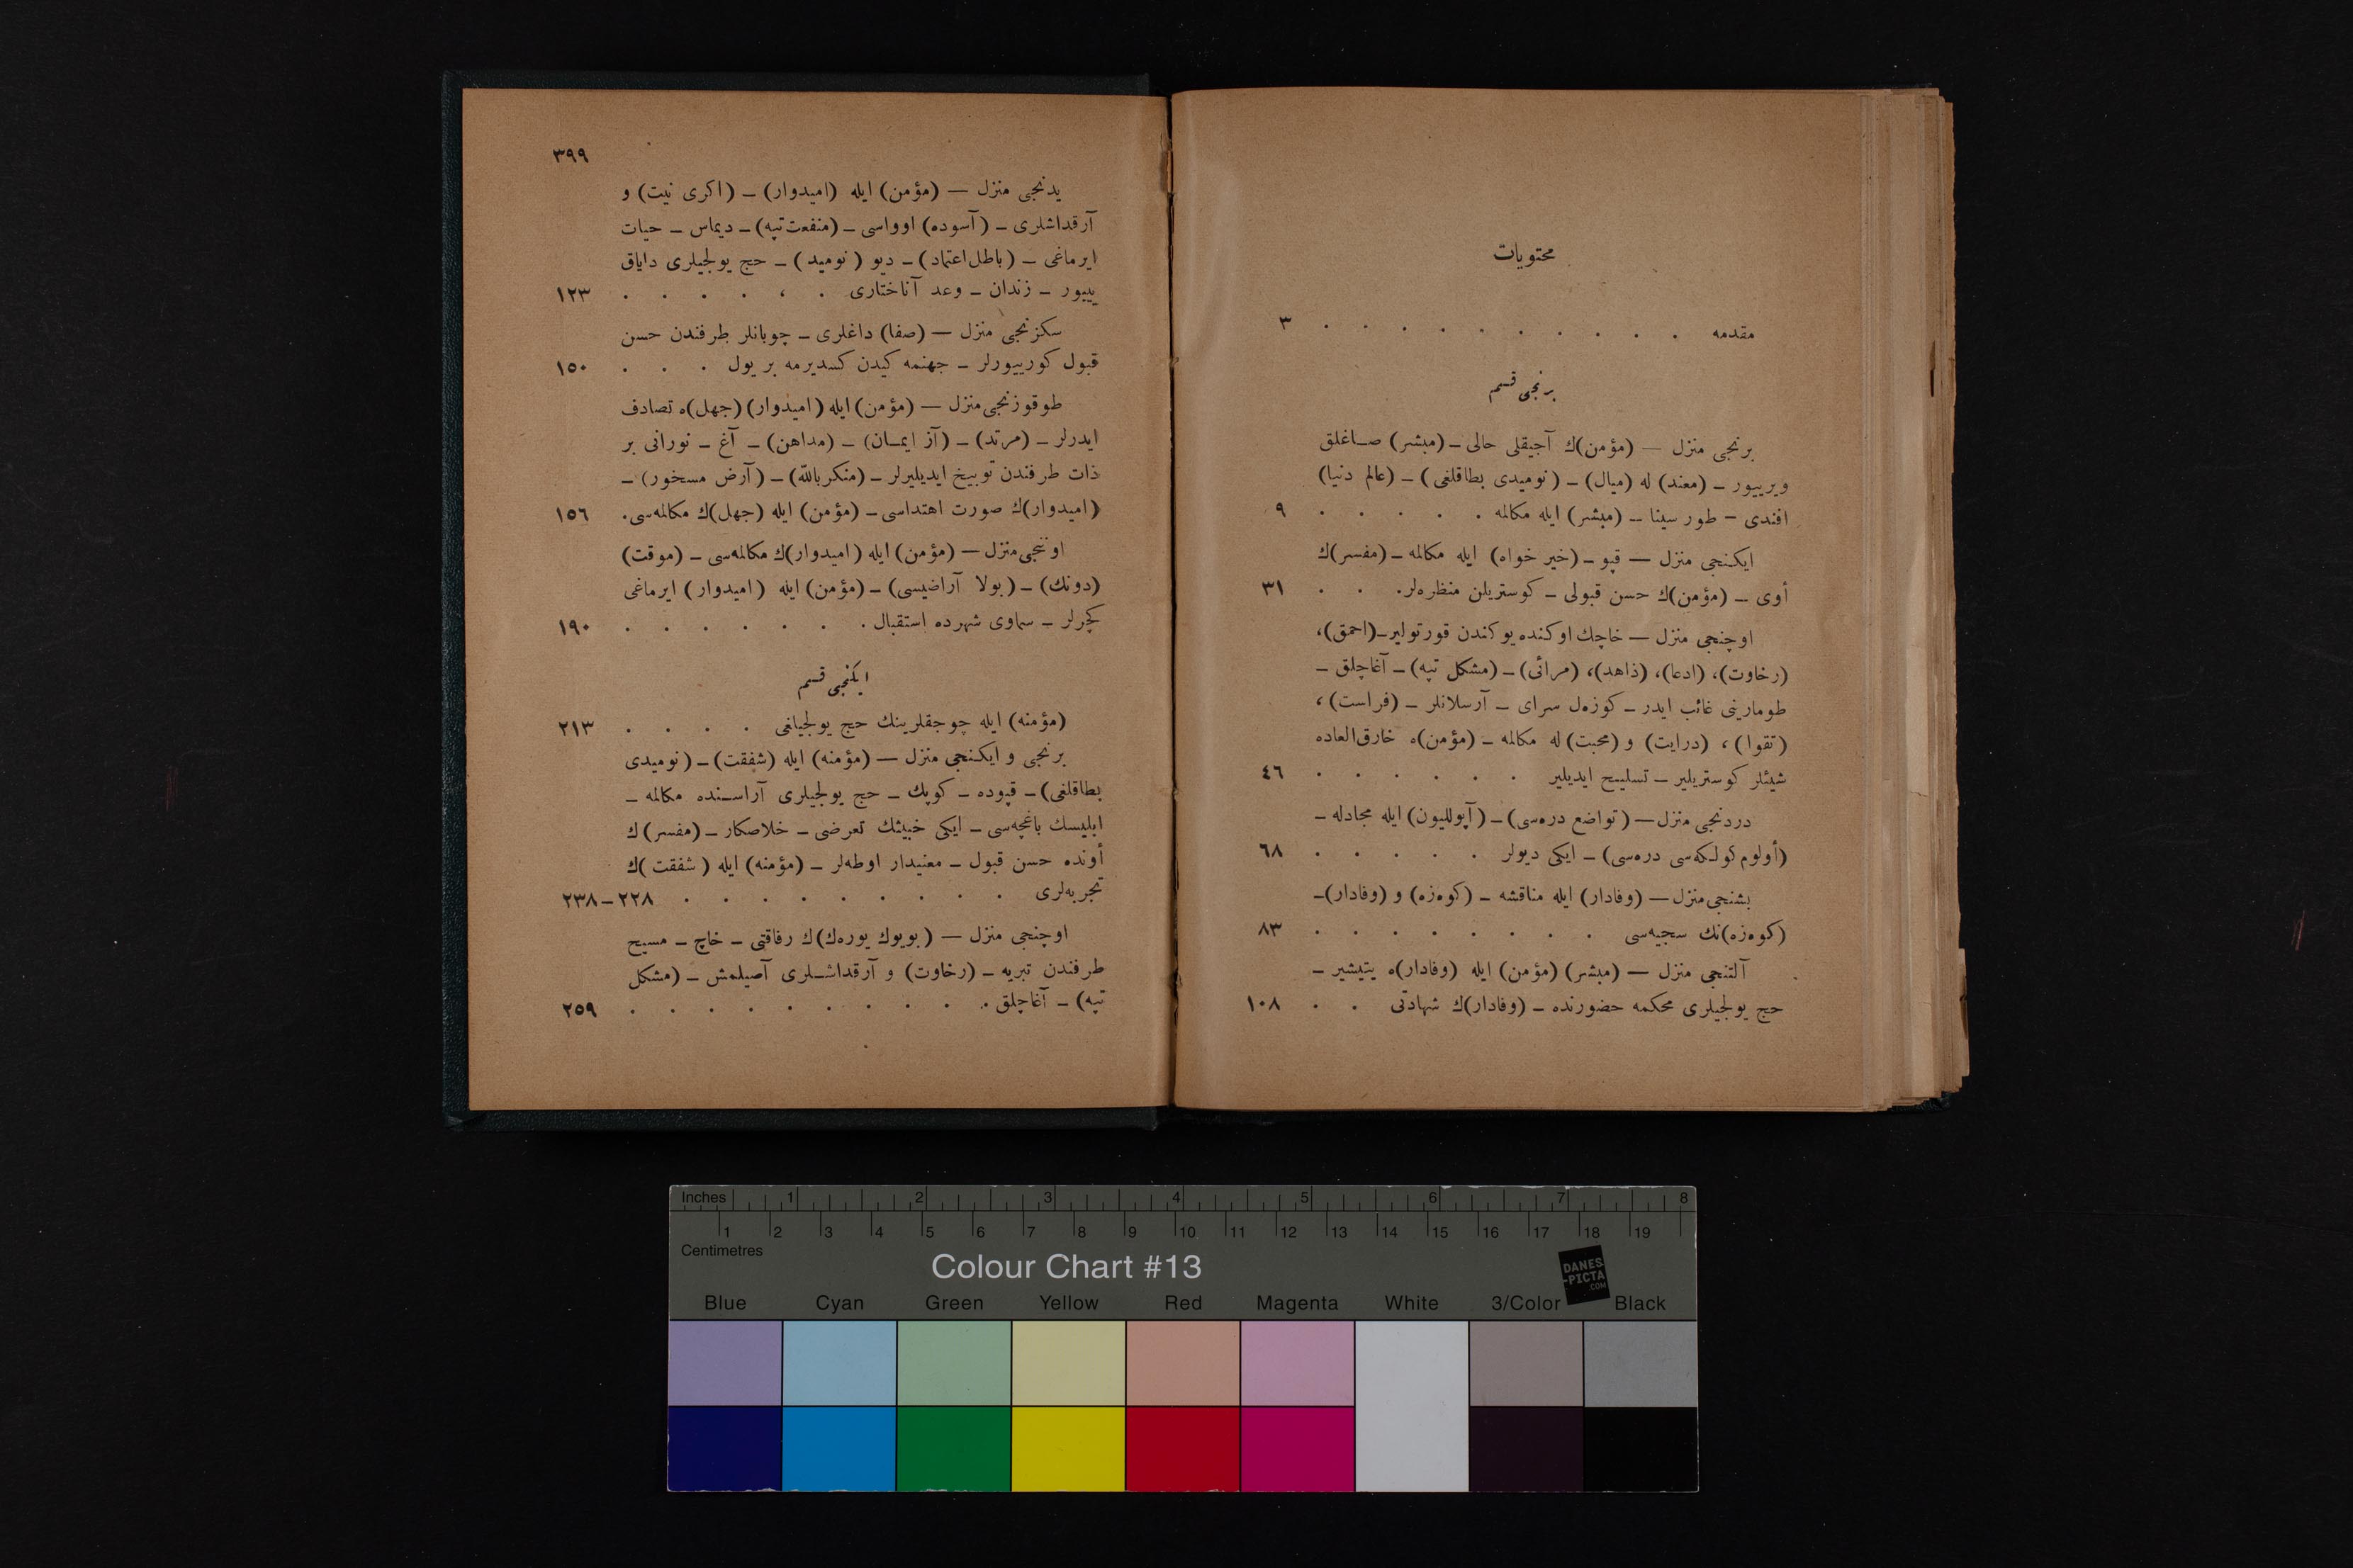 محتويات
مقدمه . . . . . . . . . . ٣
برنجى قسم
برنجى منزل — (مؤمن)ك آجيقلى حالى ـ (مبشر) صاغلق
ويرييور ـ (معند) له (ميال) ـ (نوميدى بطاقلغى) ـ (عالم دنيا)
افندى ـ طور سينا ـ (مبشر) ايله مكالمه . . . . . ٩
ايكنجى منزل — قپو ـ (خير خواه) ايله مكالمه ـ (مفسر)ك
أوى ـ (مؤمن)ك حسن قبولى ـ كوستريلن منظره‌لر. . . ٣١
اوچنجى منزل — خاچك اوكنده يوكندن قورتولير ـ (احمق)،
(رخاوت)، (ادعا)، (ذاهد)، (مرائى) ـ (مشكل تپه) ـ آغاچلق ـ
طومارينى غائب ايدر ـ كوزه‌ل سراى ـ آرسلانلر ـ (فراست)،
(تقوا)، (درايت) و (محبت) له مكالمه ـ (مؤمن)ه خارق‌العاده
شيئلر كوستريلير ـ تسليح ايديلير . . . . . . ٤٦
دردنجى منزل — (تواضع دره‌سى) ـ (آپوللیون) ايله مجادله ـ
(أولوم كولكه‌سى دره‌سى) ـ ايكى ديولر . . . . . ٦٨
بشنجى منزل — (وفادار) ايله مناقشه ـ (كوه‌زه) و (وفادار) ـ
(كوه‌زه)نك سجيه‌سى . . . . . . . . ٨٣
آلتنجى منزل — (مبشر) (مؤمن) ايله (وفادار)ه يتيشير ـ
حج يولجيلرى محكمه حضورنده ـ (وفادار)ك شهادتى . . ١٠٨
٣٩٩
يدنجى منزل — (مؤمن) ايله (اميدوار) ـ (اكرى نيت) و
آرقداشلرى ـ (آسوده) اوواسى ـ (منفعت‌تپه) ـ ديماس ـ حيات
ايرماغى ـ (باطل‌اعتماد) ـ ديو (نوميد) ـ حج يولجيلرى داياق
ييیور ـ زندان ـ وعد آناختارى . ، . . . . ١٢٣
سكزنجى منزل — (صفا) داغلرى ـ چوبانلر طرفندن حسن
قبول كورييورلر ـ جهنمه كيدن كسديرمه بر يول . . . ١٥٠
طوقوزنجى منزل — (مؤمن) ايله (اميدوار) (جهل)ه تصادف
ايدرلر ـ (مرتد) ـ (آز ايمان) ـ (مداهن) ـ آغ ـ نورانى بر
ذات طرفندن توبيخ ايديليرلر ـ (منكر بالله) ـ (آرض مسخور) ـ
(اميدوار)ك صورت اهتداسى ـ (مؤمن) ايله (جهل)ك مكالمه‌سى. ١٥٦
اوننجى منزل — (مؤمن) ايله (اميدوار)ك مكالمه‌سى ـ (موقت)
(دونك) ـ (بولا آراضيسى) ـ (مؤمن) ايله (اميدوار) ايرماغى
كچرلر ـ سماوى شهرده استقبال . . . . . . . ١٩٠
ايكنجى قسم
(مؤمنه) ايله چوجقلرينك حج يولجيلغى . . . . ٢١٣
برنجى و ايكنجى منزل — (مؤمنه) ايله (شفقت) ـ (نوميدى
بطاقلغى) ـ قپوده ـ كوپك ـ حج يولجيلرى آراسنده مكالمه ـ
ابليسك باغچه‌سى ـ ايكى خبيثك تعرضى ـ خلاصكار ـ (مفسر)ك
أونده حسن قبول ـ معنيدار اوطه‌لر ـ (مؤمنه) ايله (شفقت)ك
تجربه‌لرى . . . . . . . . . ٢٢٨ـ٢٣٨
اوچنجى منزل — (بويوك يوره‌ك)ك رفاقتى ـ خاچ ـ مسيح
طرفندن تبريه ـ (رخاوت) و آرقداشلرى آصيلمش ـ (مشكل
تپه) ـ آغاچلق . . . . . . . . . . ٢٥٩
Inches 1 2 3 4 5 6 7 8
1 2 3 4 5 6 7 8 9 10 11 12 13 14 15 16 17 18 19
Centimetres
Colour Chart #13
DANES
-PICTA
.COM
Blue Cyan Green Yellow Red Magenta White 3/Color Black